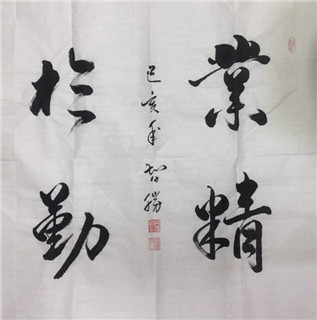 業精
於勤
己亥年智勝